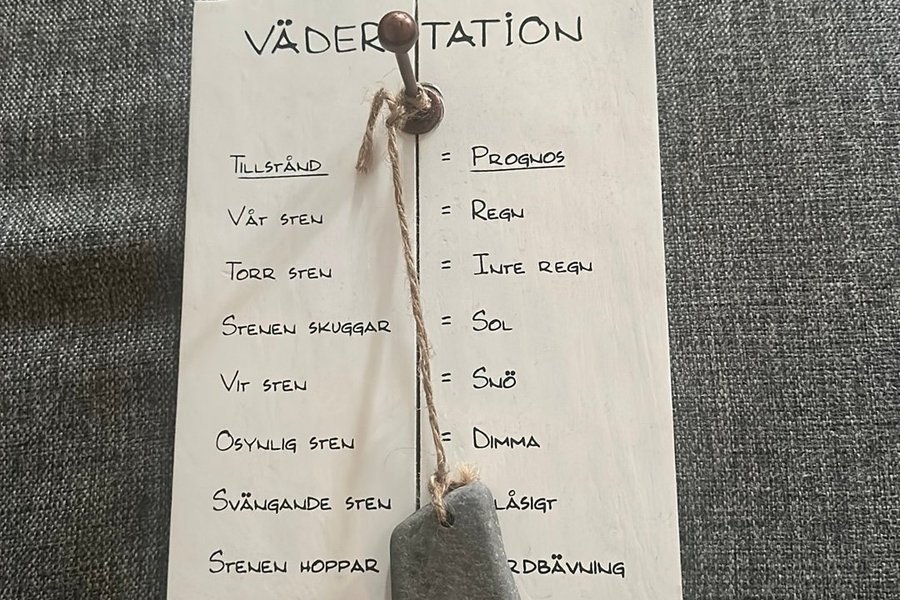 VÄDER TATION
TILLSTÅND = PROGNOS
VÅT STEN = REGN
TORR STEN = INTE REGN
STENEN SKUGGAR = SOL
VIT STEN = SNÖ
OSYNLIG STEN = DIMMA
SVÄNGANDE STEN LÅSIGT
STENEN HOPPAR RDBÄVNING